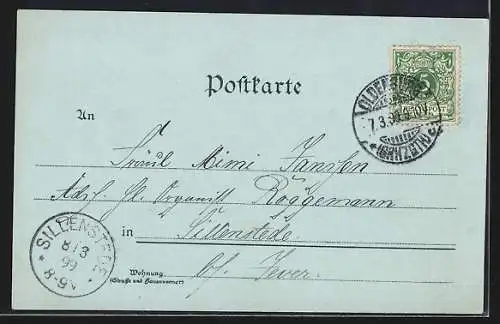 Postkarte
5
OLDENBURG
7.3.99
(GRHZGTH)
An
Fräul Mimi Janssen
Adr. H. Organist Roggemann
in Sillenstede
SILLENSTEDE
8/3
99
Wohnung
(Straße und Hausnummer)
bf. Jever.